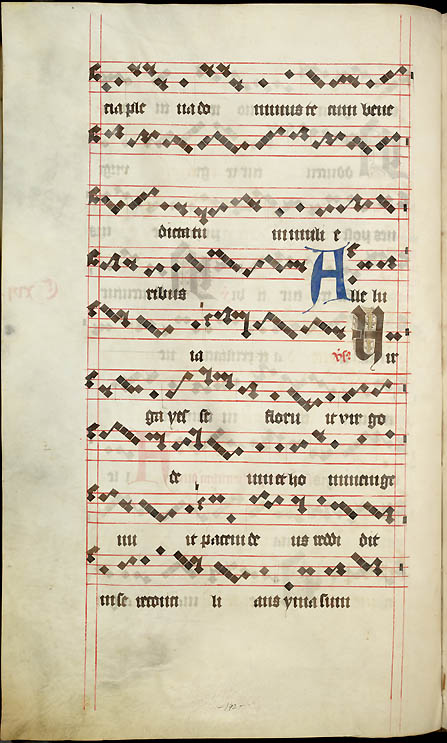 tia ple na do minus te cum bene
dicta tu in muli e
ribus A lle lu
ia v̄s. V ir
ga yes se floru it vir go
de um et ho minem ge
nu it pacem de us reddi dit
in se reconci li ans yma sum
192